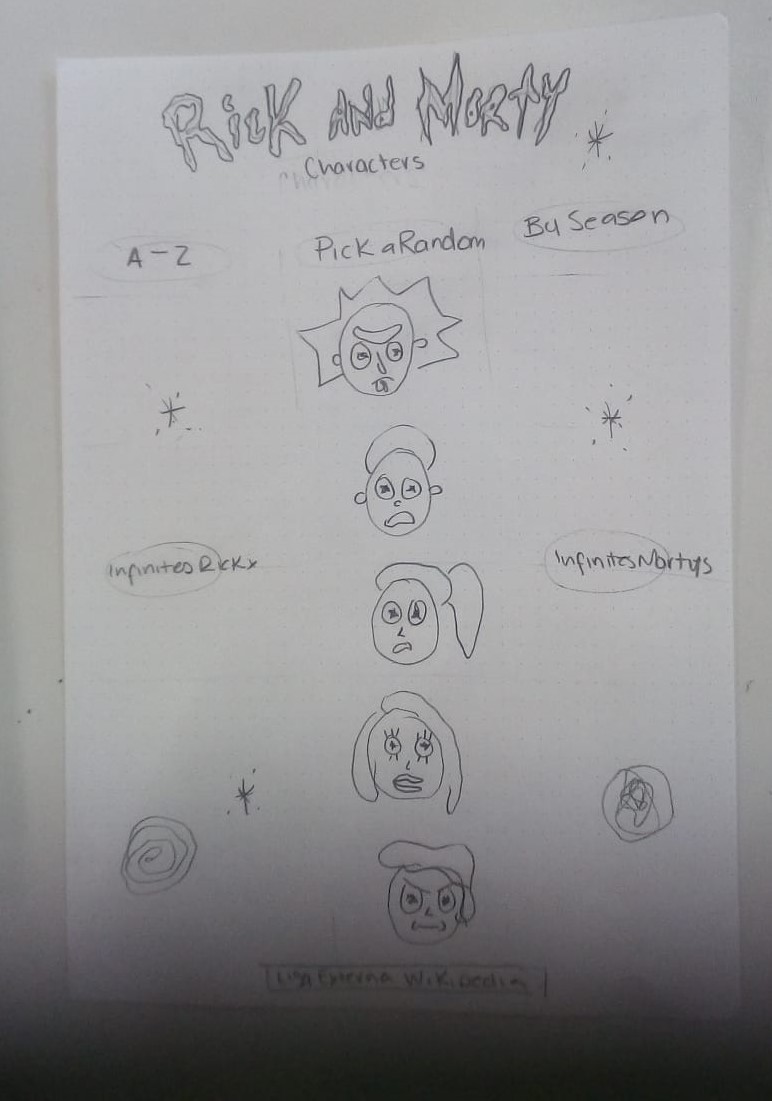 Rick AND MORTY
Characters
A-Z
Pick a Random
By Season
Infinites Rickx
Infinites Mortys
Externa Wikipedia